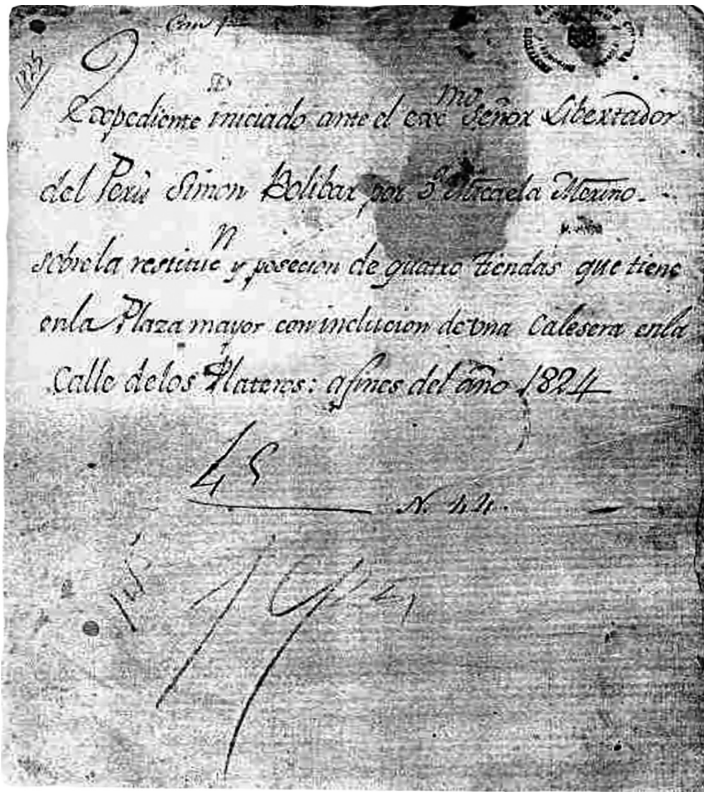 1825
Expediente iniciado ante el exc.mo Señor Libertador
del Perú Simon Bolibar por D.ª Micaela Merino
sobre la restituc.n y posecion de quatro tiendas que tiene
en la Plaza mayor con inclucion de una Calesera en la
Calle de los Plateros: a fines del año 1824
45
N. 44.